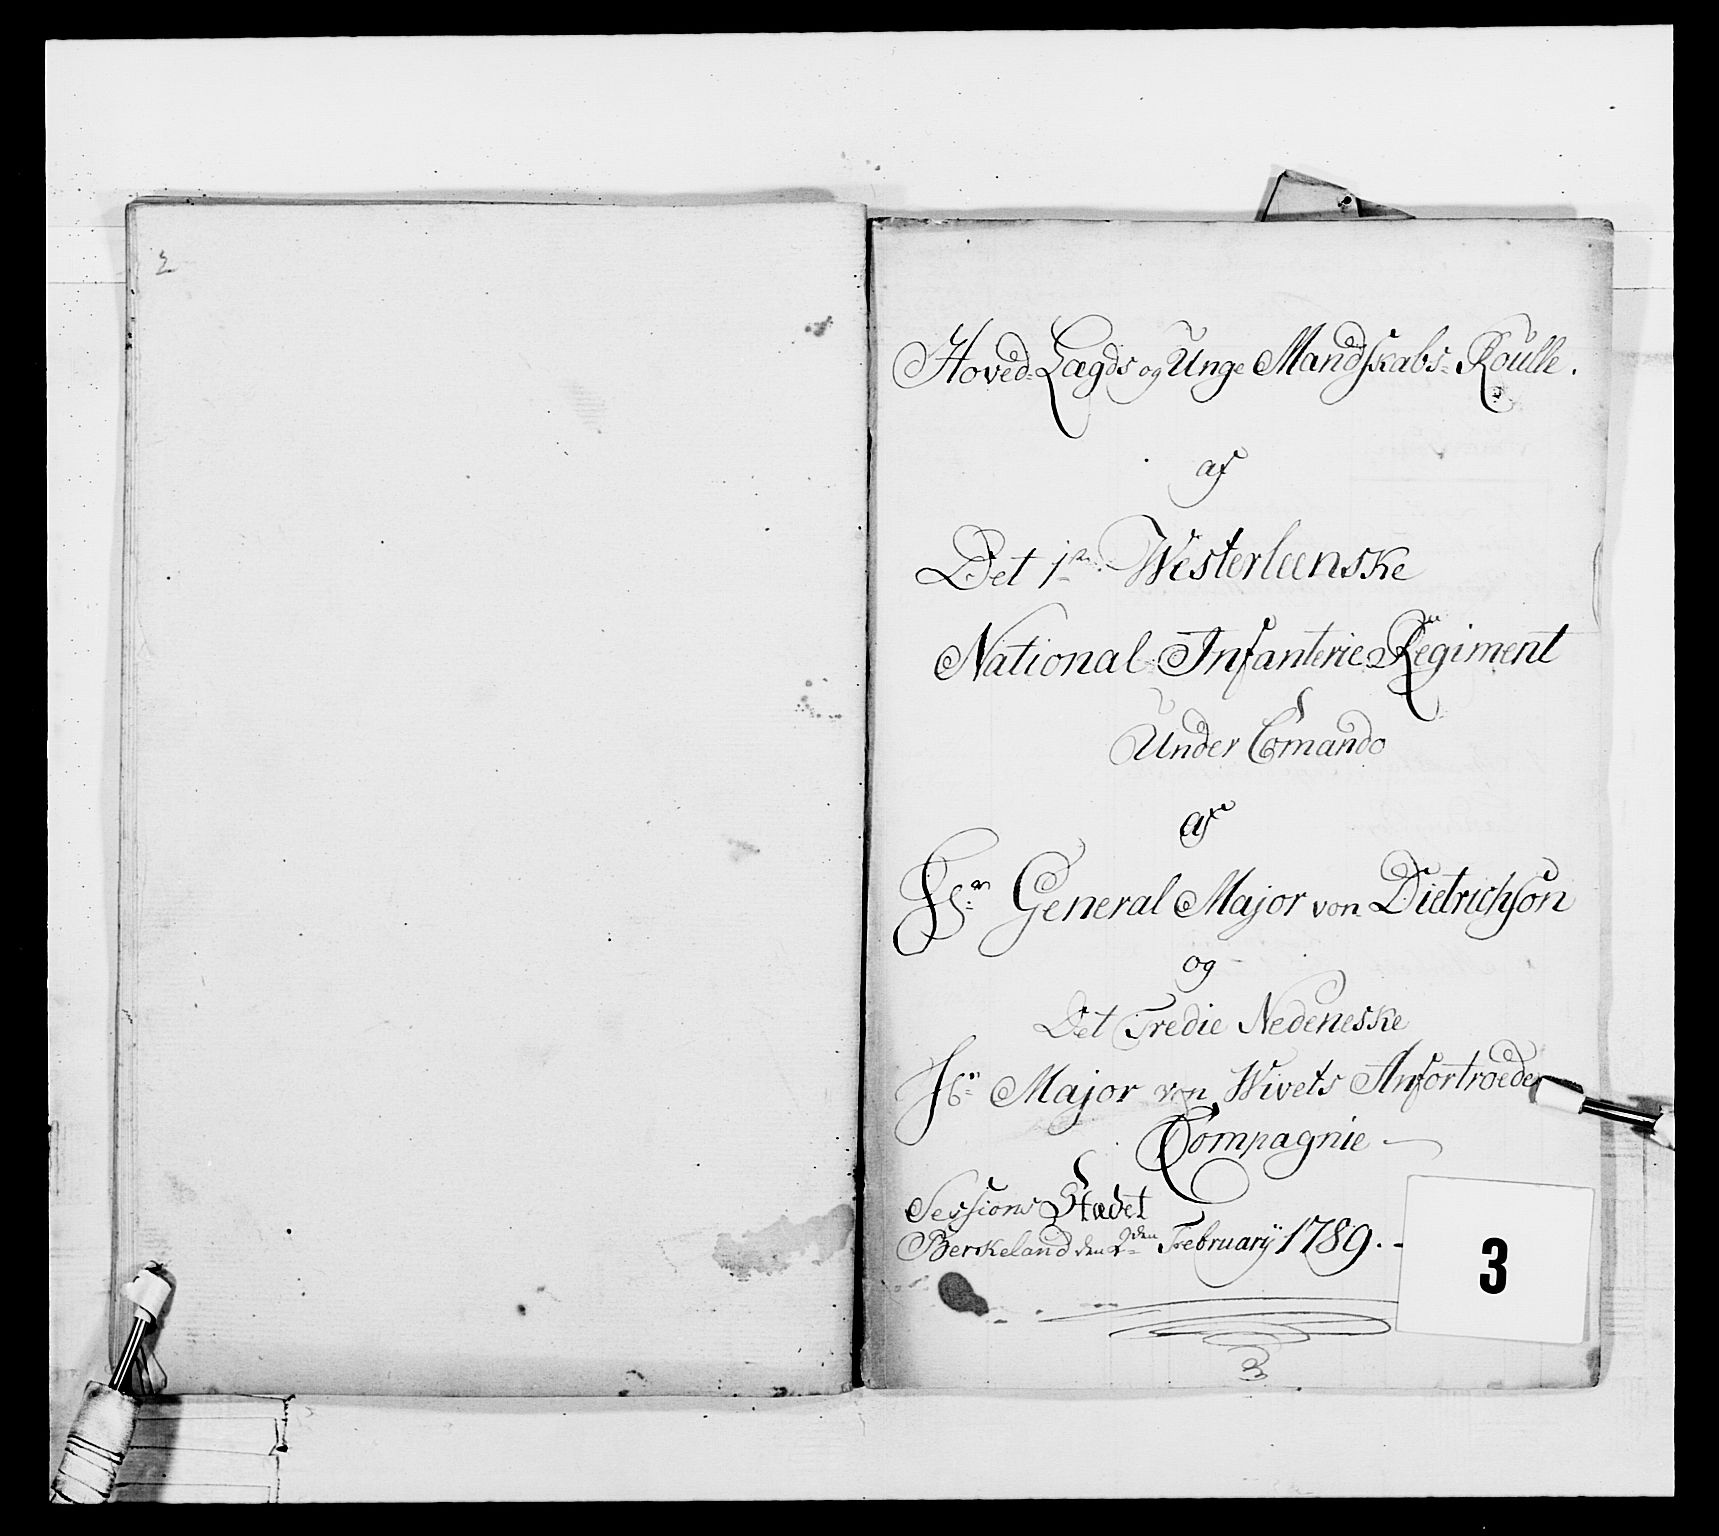 2
Hoved-Lægds og Unge Mandskabs-Roulle.
af
Det 1ste Westerleenske
National Infanterie Regiment
Under Comando
af
Hr. General Major von Dietrichson
og
Det Tredie Nedeneske
Hr. Major von Wivets Anfortroede
Compagnie
Sessions Stædet
Berkeland den 2den February 1789.
3
3